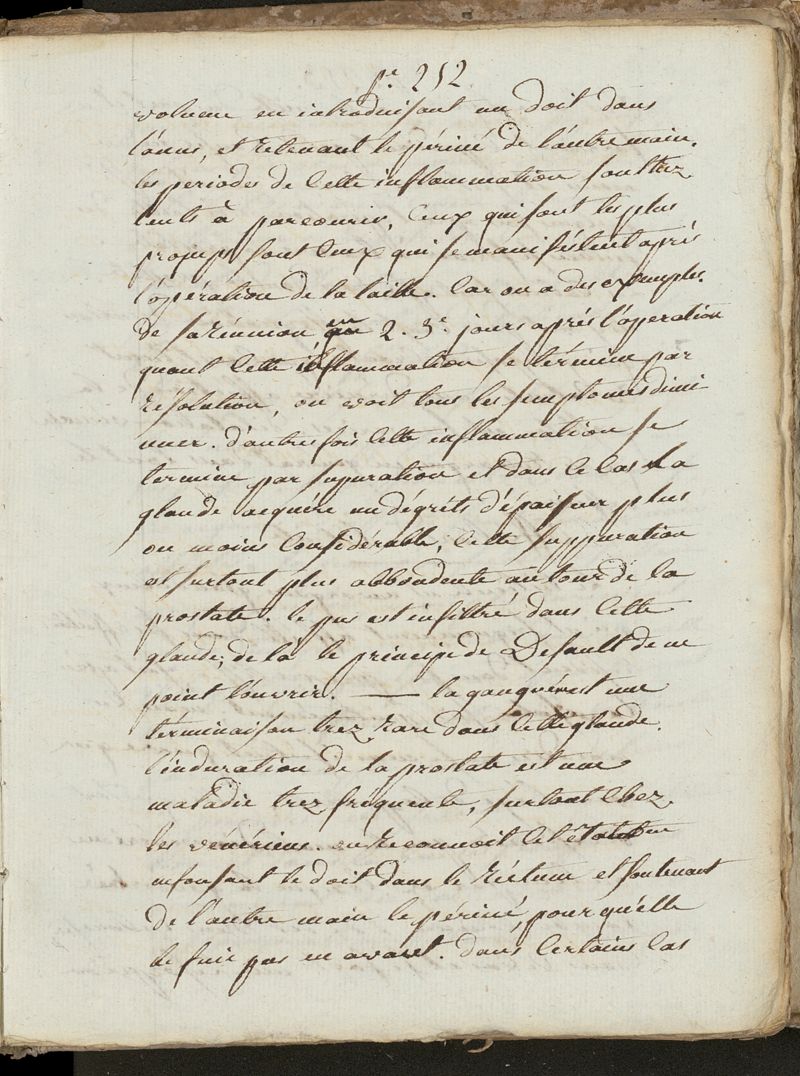 pe. 252
volume en introduisant un doit dans
l'anus, et relevant le périné de l'autre main.
les periodes de cette inflammation sont trez
lents à parcourir, ceux qui sont les plus
prompts sont ceux qui se manifestent après
l'opération de la taille. Car on a des exemples
de sa réunion en 2. 3e. jours après l'opération
quant cette inflammation se términe par
résolution, on voit tous les symptomes dimi
nuer. d'autres fois cette inflammation se
termine par supuration et dans ce cas la
glande acquére un dégréts d'épaisseur plus
ou moins considérable, cette suppuration
est surtout plus abbondente autour de la
prostate. le pus est infiltré dans cette
glande, de là le principe de Default de ne
point l'ouvrir. — la gangréne est une
términaison trez rare dans cette glande.
l'induration de la prostate est une
maladie trez fréquente, surtout chez
les vénériens. on reconnoit cet état en
enfonsant le doit dans le réctum et soutenant
de l'autre main le périné, pour qu'elle
ne fuie pas en avant. dans certains cas